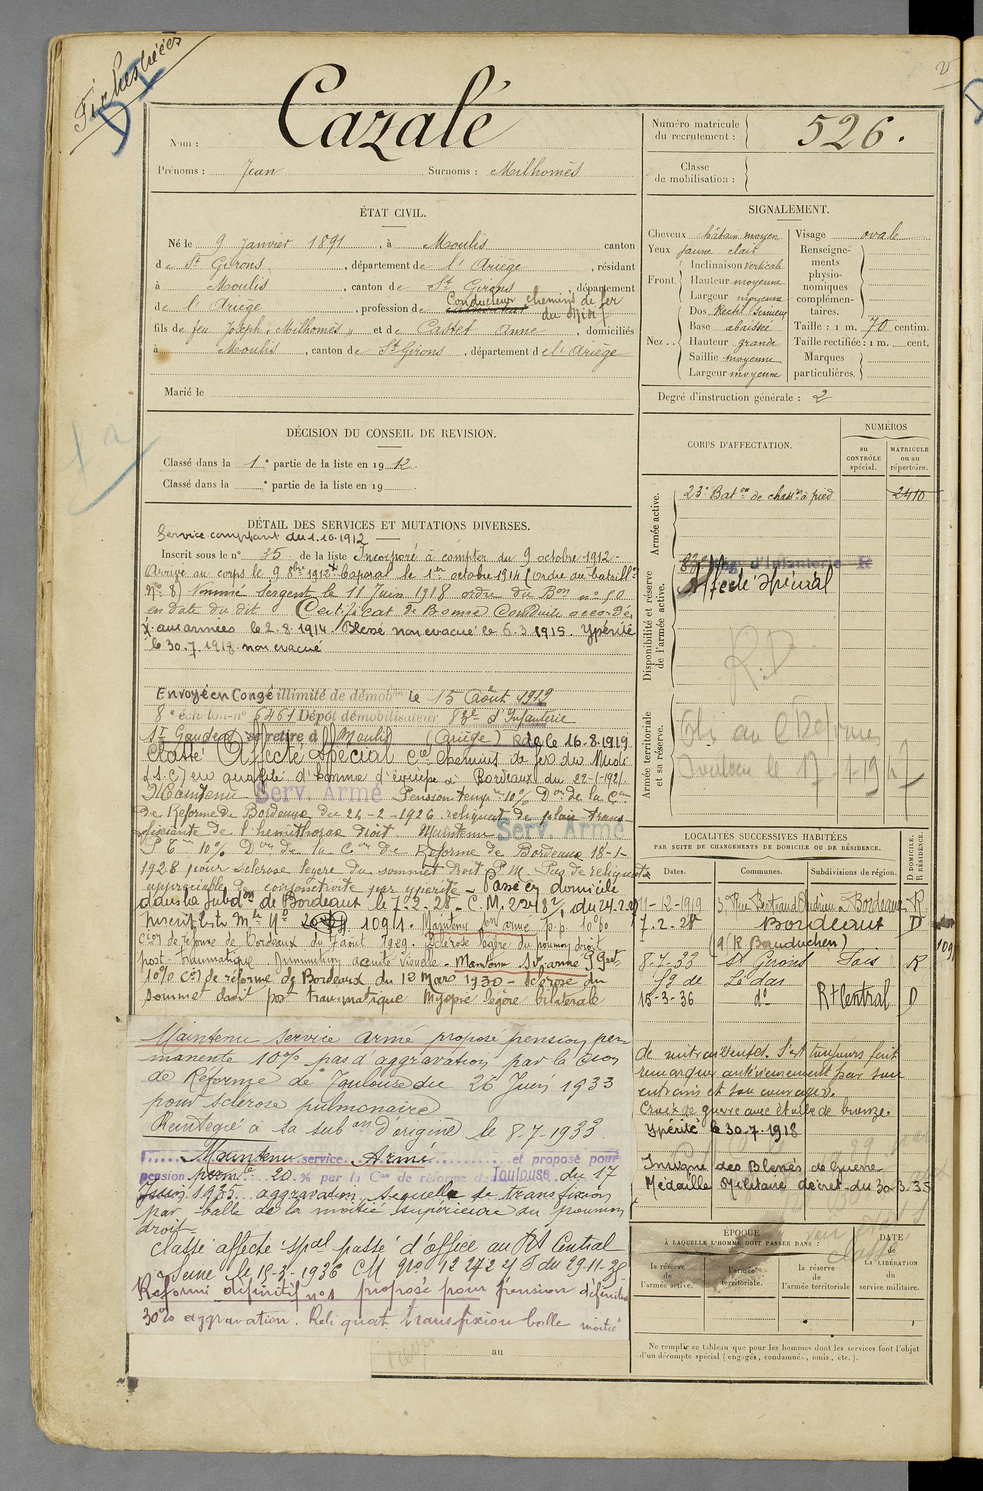 Fir Cestrées
Nom : Cazalé
Prénoms : Jean Surnoms : Milhomès
Numéro matricule du recrutement : 526.
Classe de mobilisation :
ÉTAT CIVIL.
Né le 9 Janvier 1891, à Moulis canton
de St Girons, département de l'Ariège, résidant
à Moulis, canton de St Girons, département
de l'Ariège, profession de Conducteur chemins de fer
du Midi
fils de feu Joseph "Milhomès" et de Castet Anne, domiciliés
à Moulis, canton de St Girons, département de l'Ariège
Marié le
SIGNALEMENT.
Cheveux châtain moyen
Yeux jaune clair
Front. Inclinaison verticale
Hauteur moyenne
Largeur moyenne
Nez. Dos Rectil Sinueux
Base abaissée
Hauteur grande
Saillie moyenne
Largeur moyenne
Visage ovale
Renseignements physionomiques complémentaires.
Taille : 1 m. 70 centim.
Taille rectifiée : 1 m. cent.
Marques particulières.
Degré d'instruction générale : 2
DÉCISION DU CONSEIL DE REVISION.
Classé dans la 1e partie de la liste en 1912.
Classé dans la e partie de la liste en 19
DÉTAIL DES SERVICES ET MUTATIONS DIVERSES.
Service comptant du 1.10.1912
Inscrit sous le n° 35 de la liste Incorporé à compter du 9 octobre 1912 -
Arrivé au corps le 9 8bre 1912 Caporal le 1er octobre 1914 (ordre du bataillon
n° 8) Nommé Sergent le 11 Juin 1918 ordre du Bon n° 80
en date du dit Certificat de Bonne Conduite accordé.
X aux armées le 2.8.1914. Blessé non evacué le 6.3.1915. Ypérité
le 30.7.1918 non evacué
Envoyé en Congé illimité de démobon le 15 Août 1919
8e échelon n° 6461 Dépôt démobilisateur 83e d'Infanterie
St Gaudens se retire à Moulis (Ariège) Rdc le 16.8.1919
Classé Affecté spécial Cie Chemins de fer du Midi
(S.C) en qualité d'homme d'équipe à Bordeaux du 22-1-1921
Maintenu Serv Armé Pension temp. 10% Don de la Con
de Réforme de Bordeaux du 26-2-1926 reliquat de plaie trans-
fixiante de l'hémithorax droit. Maintenu Serv Armé
P Tre 10% Don de la Con de Réforme de Bordeaux 18-1-
1928 pour sclerose legère du sommet droit P.M. Pas de reliquats
appréciable de conjonctivite par ypérite - Passé en domicile
dans la Subdon de Bordeaux le 7-2-28 - C.M. 22482, du 24.2.
Inscrit liste Mle N° 1091. Maintenu Son armé p.p. 10%
Con de réforme de Bordeaux du 7 août 1929. Sclérose légère du poumon droit
post-traumatique. Diminution acuité visuelle - Maintenu Sce armé
10% Con de réforme de Bordeaux du 12 Mars 1930 - Sclerose du
sommet droit post traumatique Myopie légère bilatérale
Maintenu service armé proposé pension per
manente 10% pas d'aggravation par la Con
de Réforme de Toulouse du 26 Juin 1933
pour sclerose pulmonaire
Réintégré à sa subon d'origine le 8.7-1933.
Maintenu service Armé et proposé pour
pension perm.te 20 % par la Con de réforme de Toulouse du 17
Juin 1935 aggravation sequelle de transfixion
par balle de la moitié supérieure du poumon
droit
Classé affecté Spal passé d'office au Rt Central
Seine le 15-3-1936 CM n° 12272 du 29.11.35
Réformé définitif n°1 proposé pour pension définitive
30% aggravation. Reliquat transfixion balle moitié
au
CORPS D'AFFECTATION.
NUMÉROS
au CONTRÔLE spécial.
MATRICULE ou au répertoire.
Armée active.
23e Baton de chassrs à pied 2410
Disponibilité et réserve de l'armée active.
83e Rég. d'Infanterie R
Affecté Spécial
R.D.
Armée territoriale et sa réserve.
Toulouse le 17 1 1947
LOCALITÉS SUCCESSIVES HABITÉES
PAR SUITE DE CHANGEMENTS DE DOMICILE OU DE RÉSIDENCE.
Dates. Communes. Subdivisions de région. D DOMICILE. R RÉSIDENCE.
11-12-1919 3, Rue Bertrand Andrieu Bordeaux R
7.2.28 Bordeaux D
(9 R Bauduchen)
8-7-33 St Girons Foix R
Sq de Lédar
15-3-36 do Rt Central D
de mitrailleuses. S'est toujours fait
remarquer antérieurement par son
entrain et son courage.
Croix de guerre avec étoile de bronze.
Ypérité le 30.7.1918
Insigne des Blessés de Guerre
Médaille Militaire décret du 30.3.35
ÉPOQUE
À LAQUELLE L'HOMME DOIT PASSER DANS :
la réserve de l'armée active.
l'armée territoriale.
la réserve de l'armée territoriale
DATE de LA LIBÉRATION du service militaire.
Ne remplir ce tableau que pour les hommes dont les services font l'objet
d'un décompte spécial (engagés, condamnés, omis, etc.).